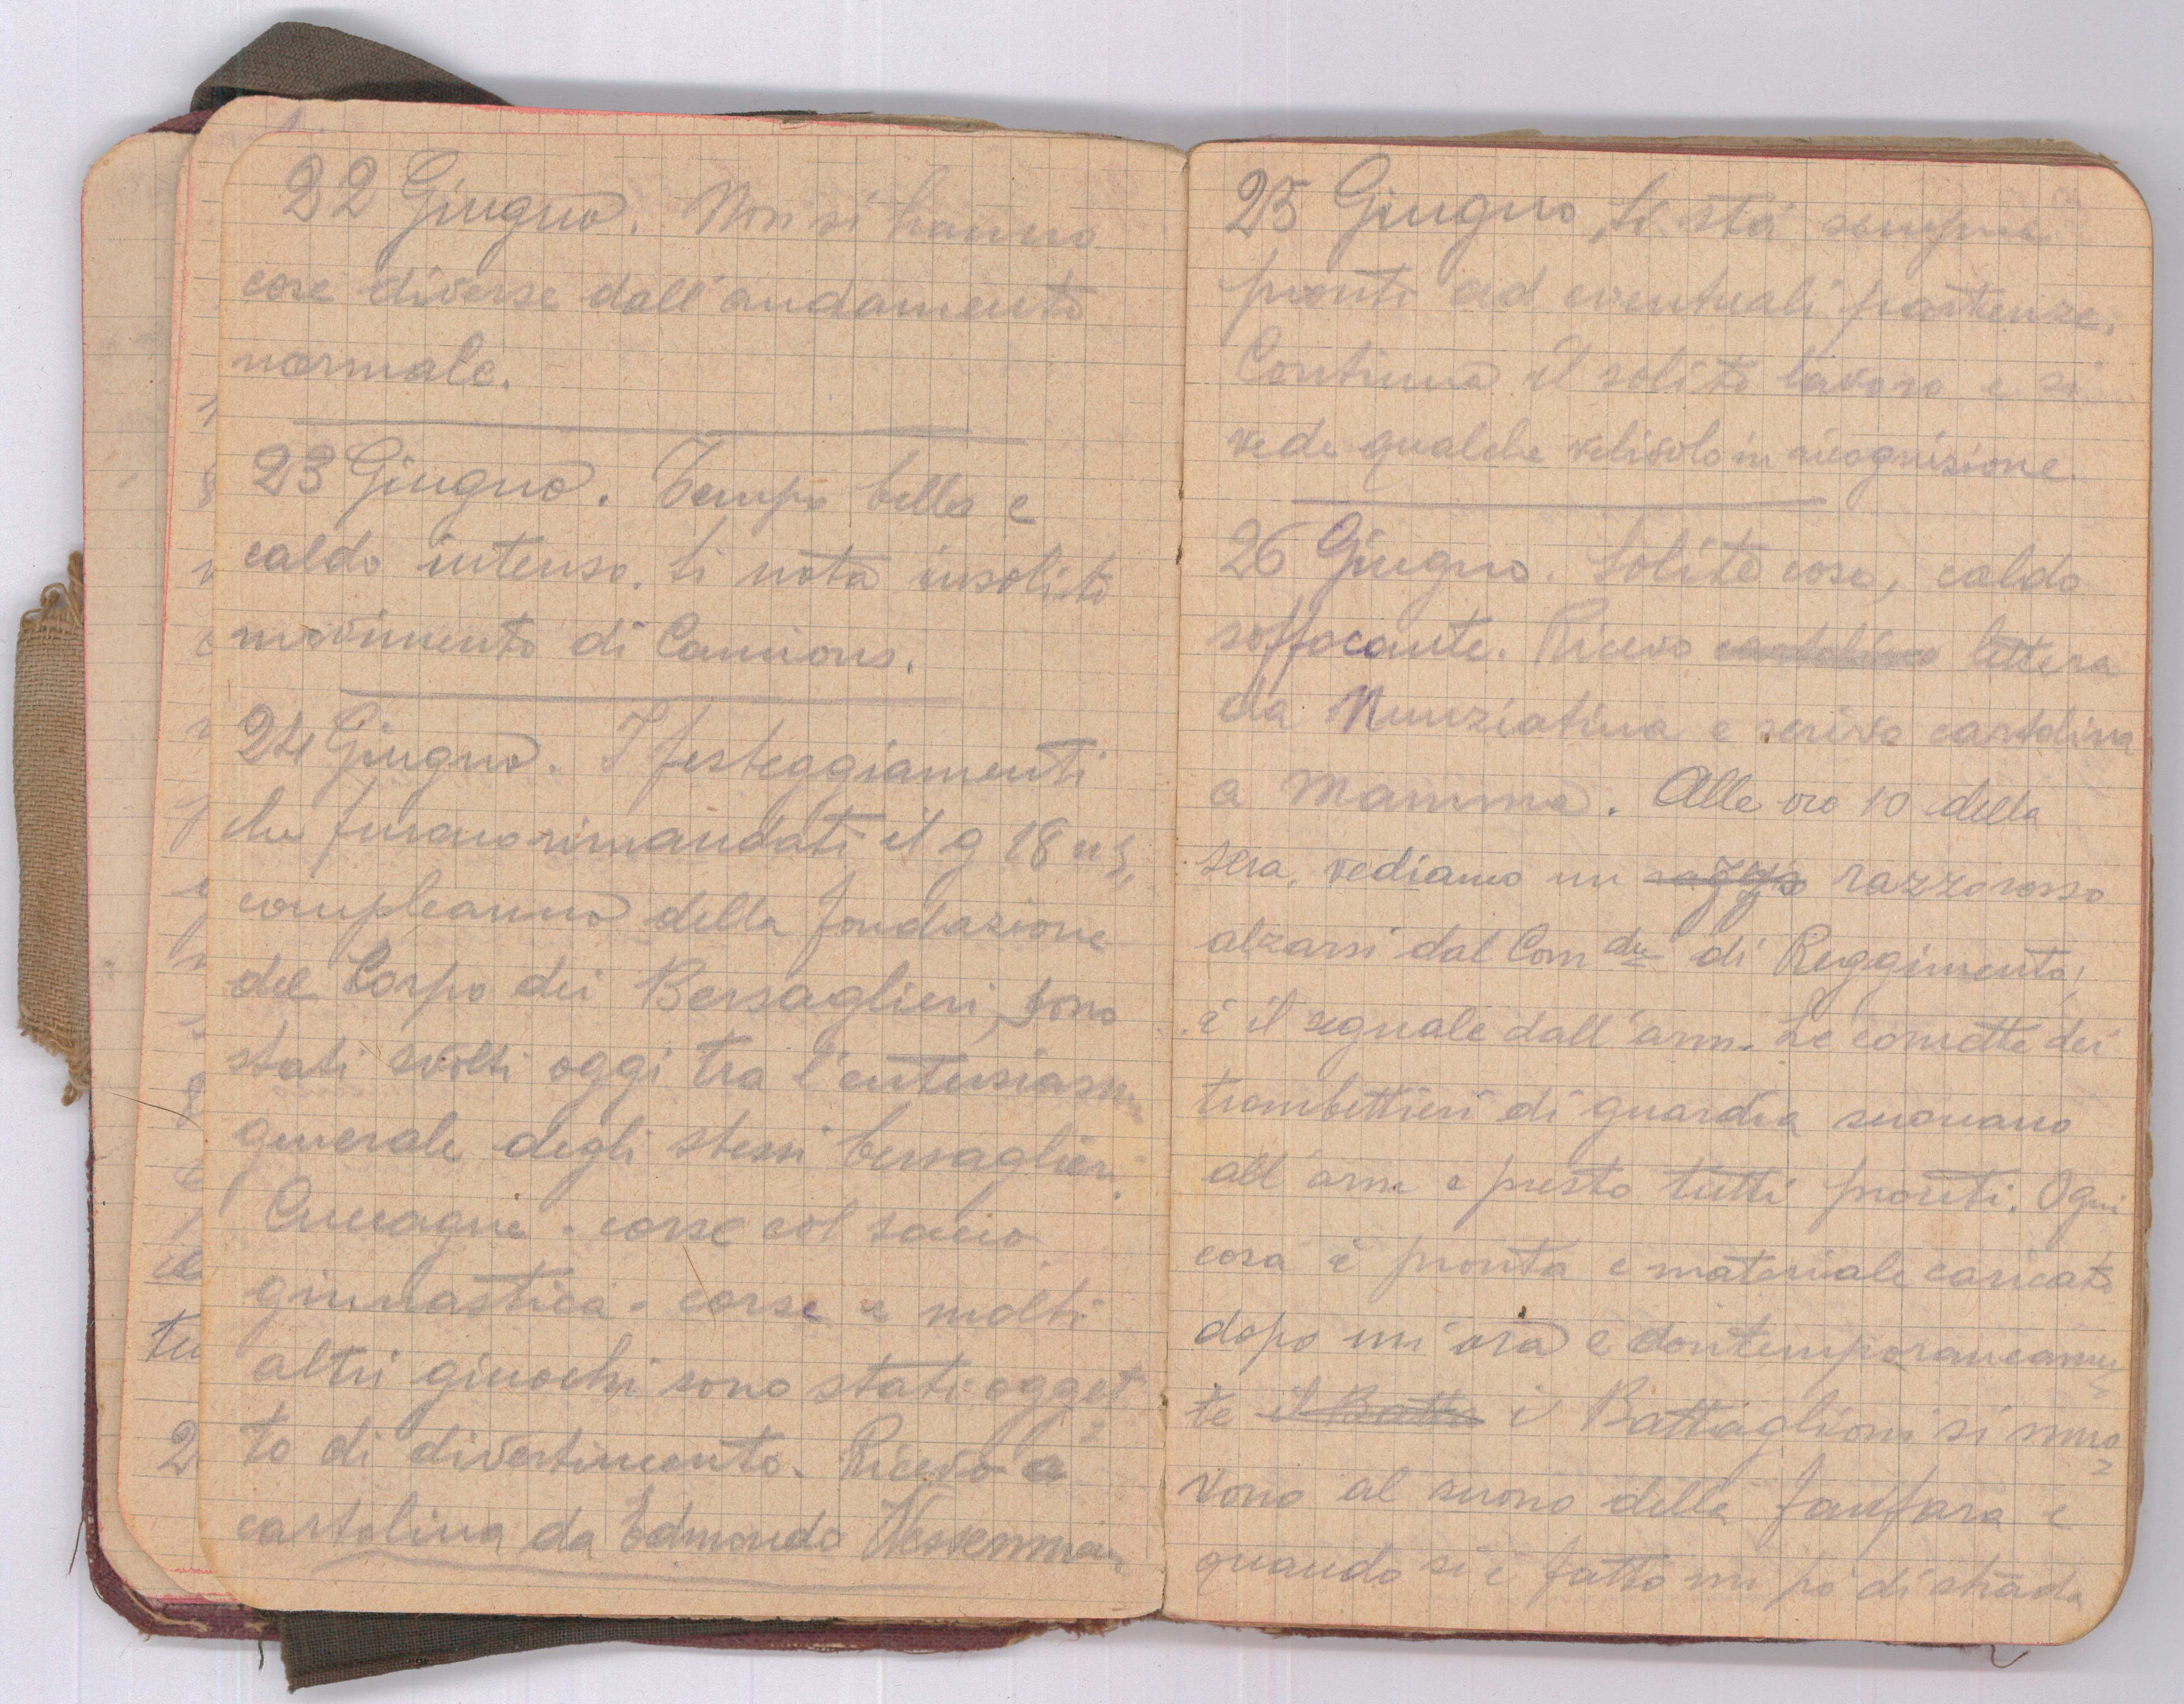 22 Giugno. Non si hanno
cose diverse dall'andamento
normale.
23 Giugno. Tempo bello e
caldo intenso. Si nota insolito
movimento di Camions.
24 Giugno. I festeggiamenti
che furono rimandati il g 18 u s,
compleanno della fondazione
del Corpo dei Bersaglieri, sono
stati svolti oggi tra l'entusiasmo
generale degli stessi bersaglieri.
Cuccagne - corse col sacco
ginnastica - corse e molti
altri giuochi sono stati ogget
to di divertimento. Ricevo
cartolina da Edmondo
25 Giugno Si stà sempre
pronti ad eventuali partenze.
Continua il solito lavoro e si
vede qualche velivolo in ricognizione.
26 Giugno. Solite cose, caldo
soffocante. Ricevo cartolina lettera
da Nunziatina e scrivo cartolina
a Mamma. Alle ore 10 della
sera, vediamo un raggio razzo rosso
alzarsi dal Com do di Reggimento;
è il segnale dall'arm. Le cornette dei
trombettieri di guardia suonano
all'arm e presto tutti pronti. Ogni
cosa è pronta e materiale caricato
dopo un'ora e contemporaneamen
te il Batta i Battaglioni si muo
vono al suono della fanfara e
quando si è fatto un pò di strada
2
tu